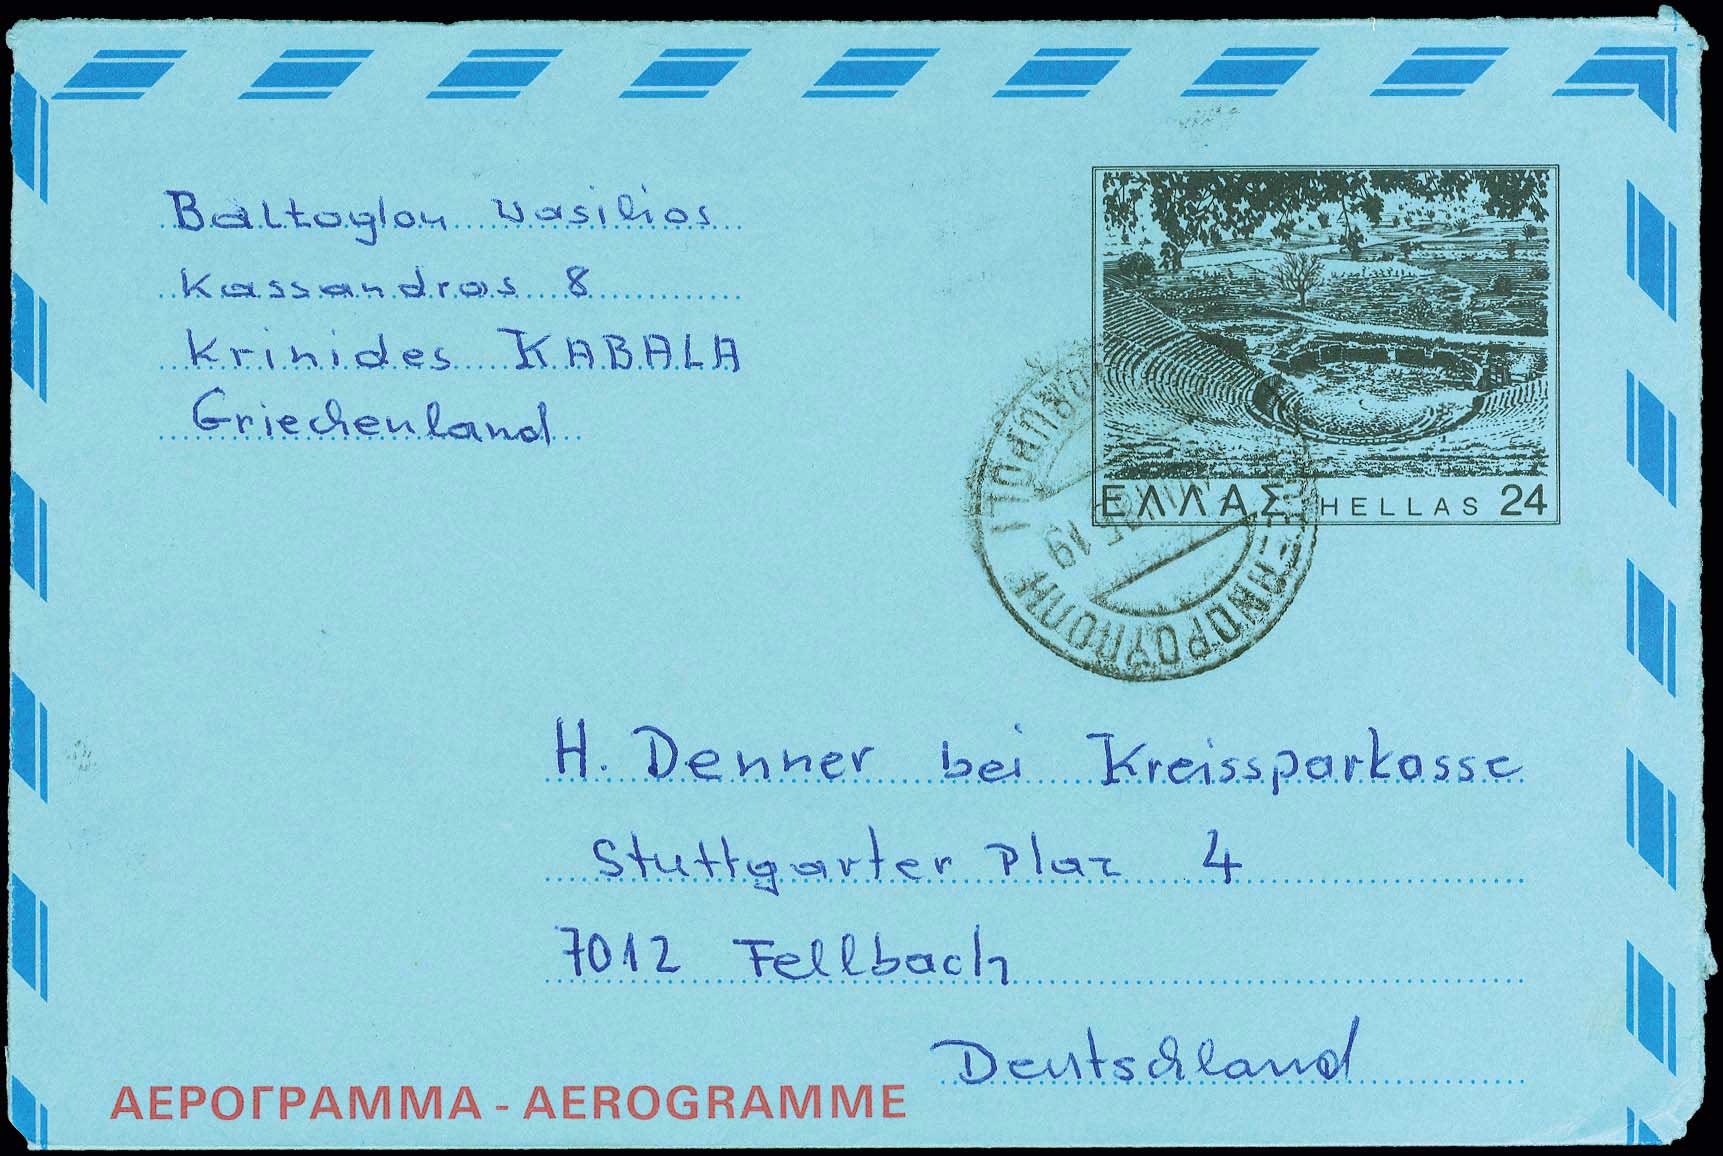 Baltoglou Vasilios
Kassandras 8
Krinides KABALA
Griechenland
ΕΛΛΑΣ HELLAS 24
19
H. Denner bei Kreissparkasse
Stuttgarter Plaz 4
7012 Fellbach
Deutschland
ΑΕΡΟΓΡΑΜΜΑ - AEROGRAMME